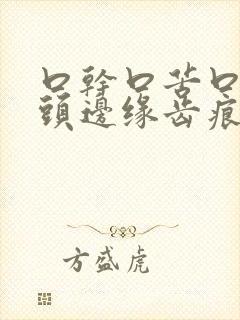 口幹口苦口
頭邊緣齿痕
方盛虎